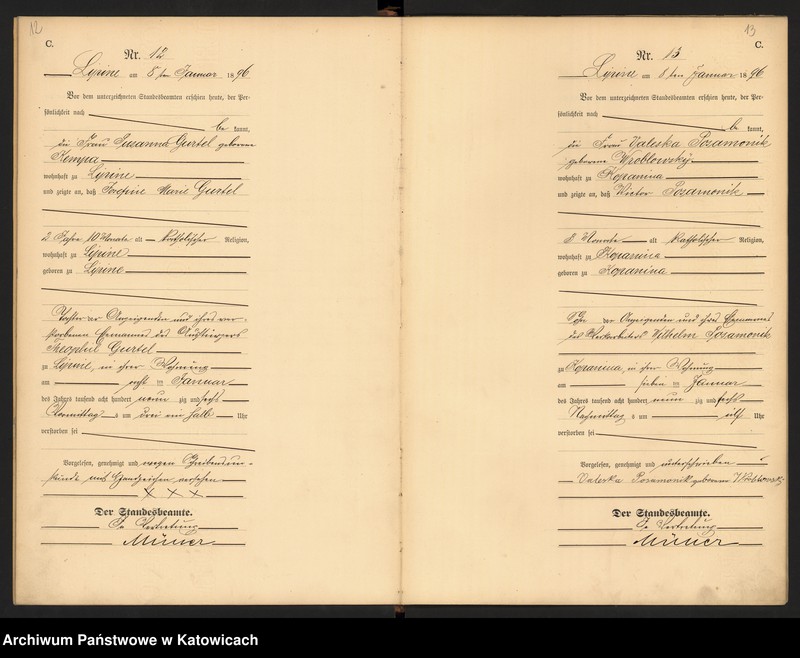 12
C.
Nr. 12
Lipine am 8 ten Januar 1896
Vor dem unterzeichneten Standesbeamten erschien heute, der Per-
sönlichkeit nach
be kannt,
die Frau Susanna Gurtel geborene
Kempa
wohnhaft zu Lipine
und zeigte an, daß Josefine Marie Gurtel
2 Jahre 10 Monate alt katholischer Religion,
wohnhaft zu Lipine
geboren zu Lipine
Tochter der Anzeigenden und ihres ver-
storbenen Ehemannes des
Theophil Gurtel
zu Lipine, in ihrer Wohnung
am acht im Januar
des Jahres tausend acht hundert neun zig und sechs
Vormittag s um drei ein halb Uhr
verstorben sei
Vorgelesen, genehmigt und wegen Schreibensun-
kunde mit Handzeichen versehen
X X X
Der Standesbeamte.
In Vertretung
Müller
13
C.
Nr. 13
Lipine am 8 ten Januar 1896
Vor dem unterzeichneten Standesbeamten erschien heute, der Per-
sönlichkeit nach
be kannt,
die Frau Valeska Posamonik
geborene Wroblowsky
wohnhaft zu Kopanina
und zeigte an, daß Victor Posamonik
8 Monate alt katholischer Religion,
wohnhaft zu Kopanina
geboren zu Kopanina
Sohn der Anzeigenden und ihres Ehemannes
des Wilhelm Posamonik
zu Kopanina, in ihrer Wohnung
am sieben im Januar
des Jahres tausend acht hundert neun zig und sechs
Nachmittag s um elf Uhr
verstorben sei
Vorgelesen, genehmigt und unterschrieben
Valeska Posamonik geborene Wroblowsky
Der Standesbeamte.
In Vertretung
Müller
Archiwum Państwowe w Katowicach